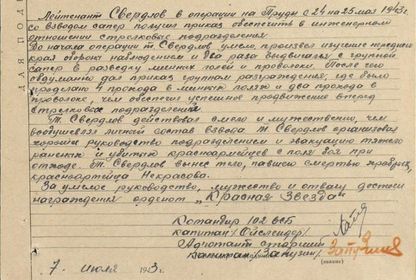 Лейтенант Свердлов в операции на Пруды с 24 на 25 мая 1943 г
со взводом сапер получил приказ обеспечить в инженерном
отношении стрелковые подразделения.
До начала операции т. Свердлов умело произвел изучение переднего
края обороны наблюдением и два раза выдвигался с группой
сапер в разведку минных полей и проволоки. После чего
дал приказ группам разграждения, где было
проделано 4 прохода в минных полях и два прохода в
проволоке, чем обеспечил успешное продвижение вперед
стрелковых подразделений.
Т. Свердлов действовал смело и мужественно, чем
воодушевлял личный состав взвода т. Свердлов организовал
хорошее руководство подразделением и эвакуацию тяжело
раненых и убитых красноармейцев с поля боя при
отходе. Т. Свердлов вынес тело, павшего смертью храбрых,
красноармейца Некрасова.
За умелое руководство, мужество и отвагу достоин
награждения орденом „Красная Звезда"
Командир 102 ОСБ
капитан /Ойслендер/
Адъютант старший
капитан /Запузин/
7 июля 1943 г.